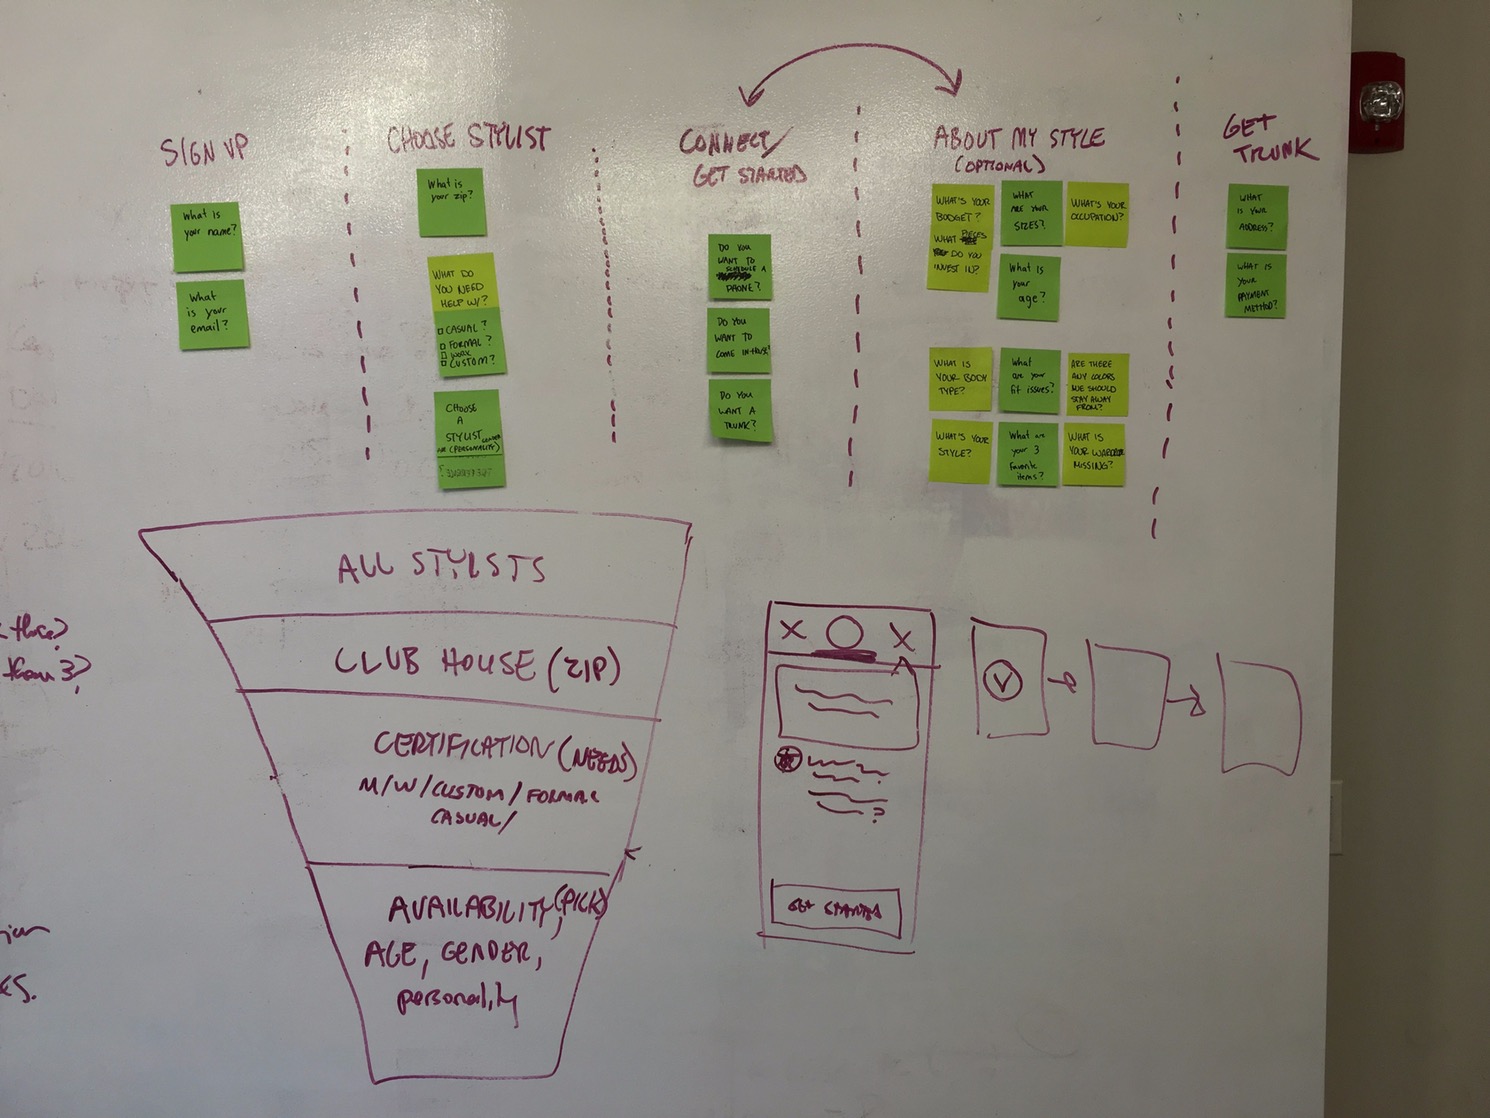 SIGN UP
What is
your name?
What
is your
email?
CHOOSE STYLIST
What is
your zip?
WHAT DO
YOU NEED
HELP W/?
CASUAL?
FORMAL?
WORK
CUSTOM?
CHOOSE
A
STYLIST GENDER
(PERSONALITY)
CONNECT/
GET STARTED
DO YOU
WANT TO
SCHEDULE A
PHONE?
DO YOU
WANT TO
COME IN-HOUSE?
DO YOU
WANT A
TRUNK?
ABOUT MY STYLE
(OPTIONAL)
WHAT'S YOUR
BUDGET?
WHAT PIECES
DO YOU
INVEST IN?
WHAT
ARE YOUR
SIZES?
WHAT'S YOUR
OCCUPATION?
What is
your
age?
WHAT IS
YOUR BODY
TYPE?
What
are your
fit issues?
ARE THERE
ANY COLORS
WE SHOULD
STAY AWAY
FROM?
WHAT'S YOUR
STYLE?
What are
your 3
favorite
items?
WHAT IS
YOUR WARDROBE
MISSING?
GET
TRUNK
WHAT
IS YOUR
ADDRESS?
WHAT IS
YOUR
PAYMENT
METHOD?
ALL STYLSTS
CLUB HOUSE (ZIP)
CERTIFICATION (NEEDS)
M/W/CUSTOM/FORMAL
CASUAL/
AVAILABILITY, (PICK)
AGE, GENDER,
personality
X X
GET STARTED